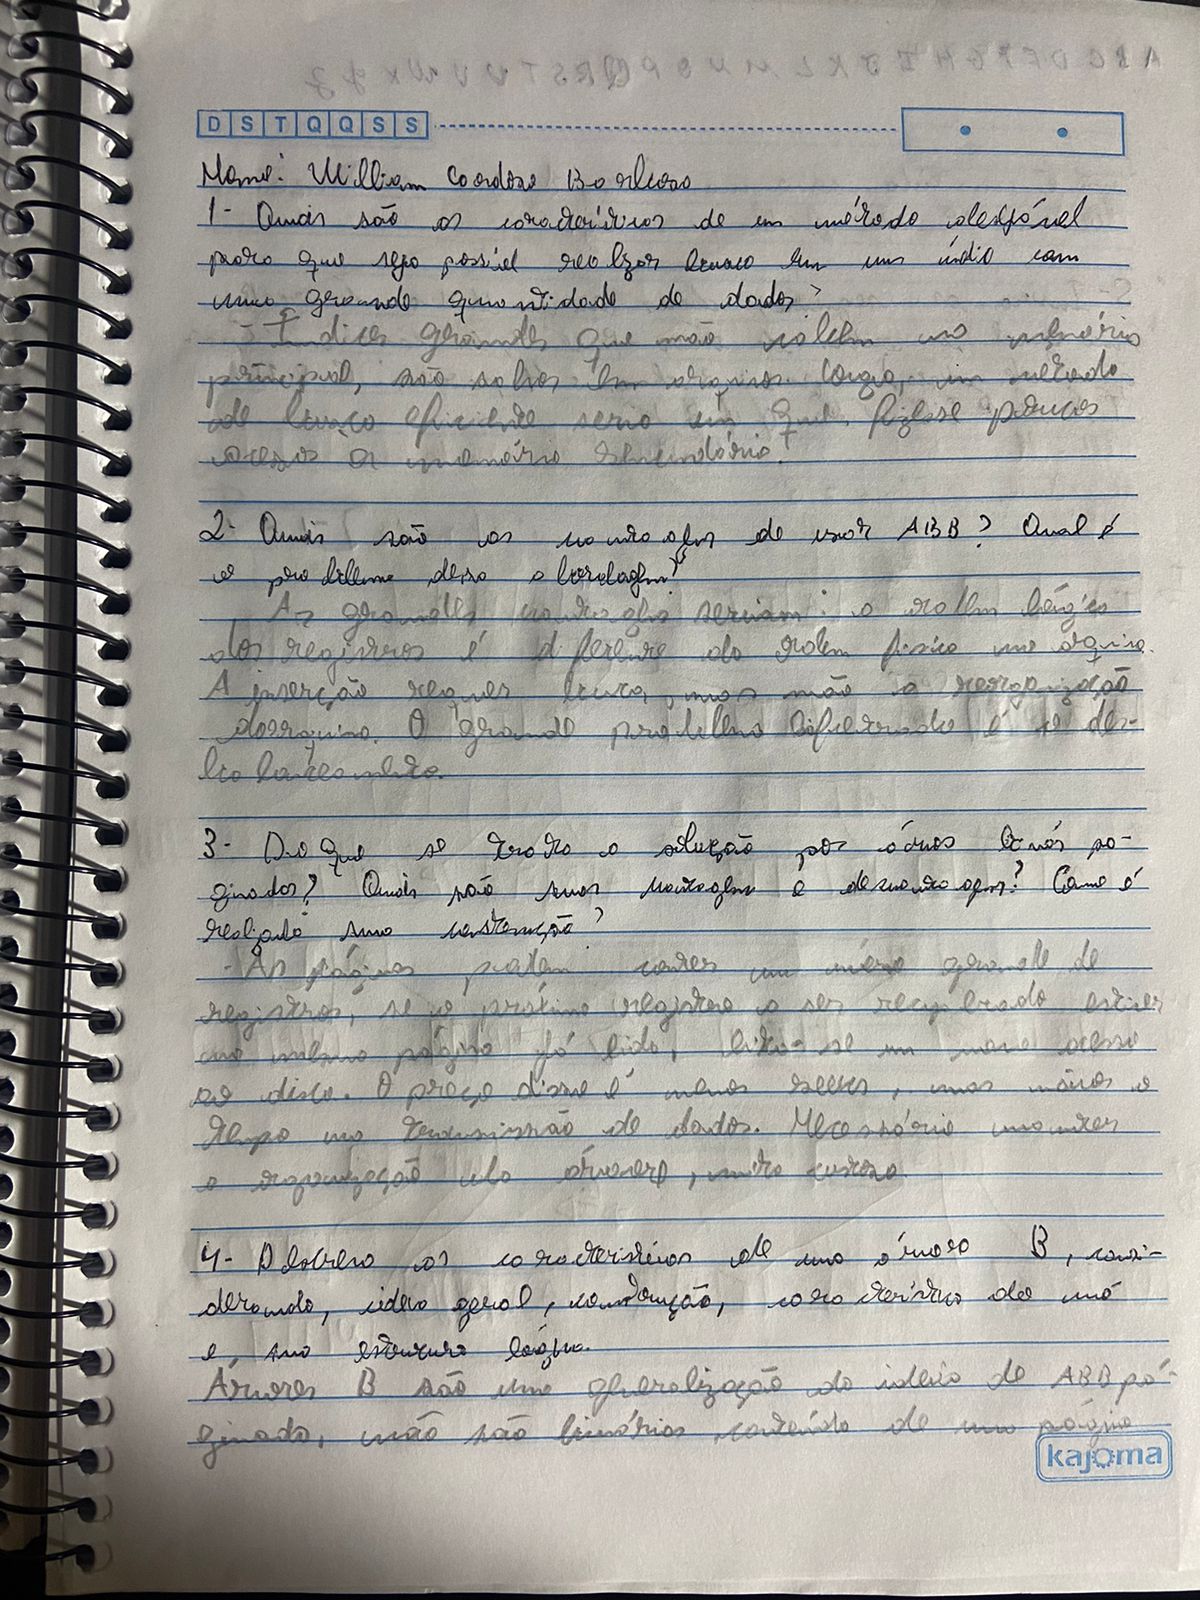 D S T Q Q S S
Nome: William Cardoso Barbosa
1- Quais são as características de um método desejável
para que seja possível realizar busca em um índice com
uma grande quantidade de dados?
- Índices grandes que não cabem na memória
principal, são salvos em arquivos. Logo, um método
de busca eficiente seria um que fizesse poucos
acessos a memória secundária.
2- Quais são as vantagens de usar ABB? Qual é
o problema dessa abordagem?
As grandes vantagens seriam: a ordem lógica
dos registros é diferente da ordem física no arquivo.
A inserção requer busca, mas não a reorganização
do arquivo. O grande problema enfrentado é o des-
balanceamento.
3- Do que se trata a solução por árvores B nós pa-
ginados? Quais são suas vantagem e desvantagem? Como é
realizado sua construção?
- As páginas podem conter um número grande de
registros, se o próximo registro a ser recuperado estiver
na mesma página já lida, evita-se um novo acesso
ao disco. O preço disso é menos seeks, mas maior o
tempo na transmissão de dados. Necessário manter
a organização da árvore, muito custoso.
4- Descreva as características de uma árvore B, consi-
derando, ideia geral, construção, característica do nó
e, sua estrutura lógica.
Arvores B são uma generalização da ideia de ABB pá-
ginada, não são binárias, conteúdo de uma página
kajoma